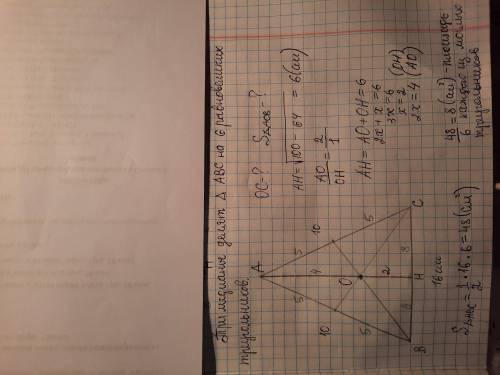 Три медианы делят △ ABC на 6 равновеликих
треугольников.
OC-? S△AOC-?
A
5
5
4
10
10
O
5
2
5
8
8
B
H
C
16 см
AH = √100 - 64 = 6 (см)
AO/OH = 2/1
AH = AO + OH = 6
2x + x = 6
3x = 6
x = 2 (OH)
2x = 4 (AO)
S△ABC = 1/2 · 16 · 6 = 48 (см²)
48/6 = 8 (см²) - площадь
каждого из малых
треугольников